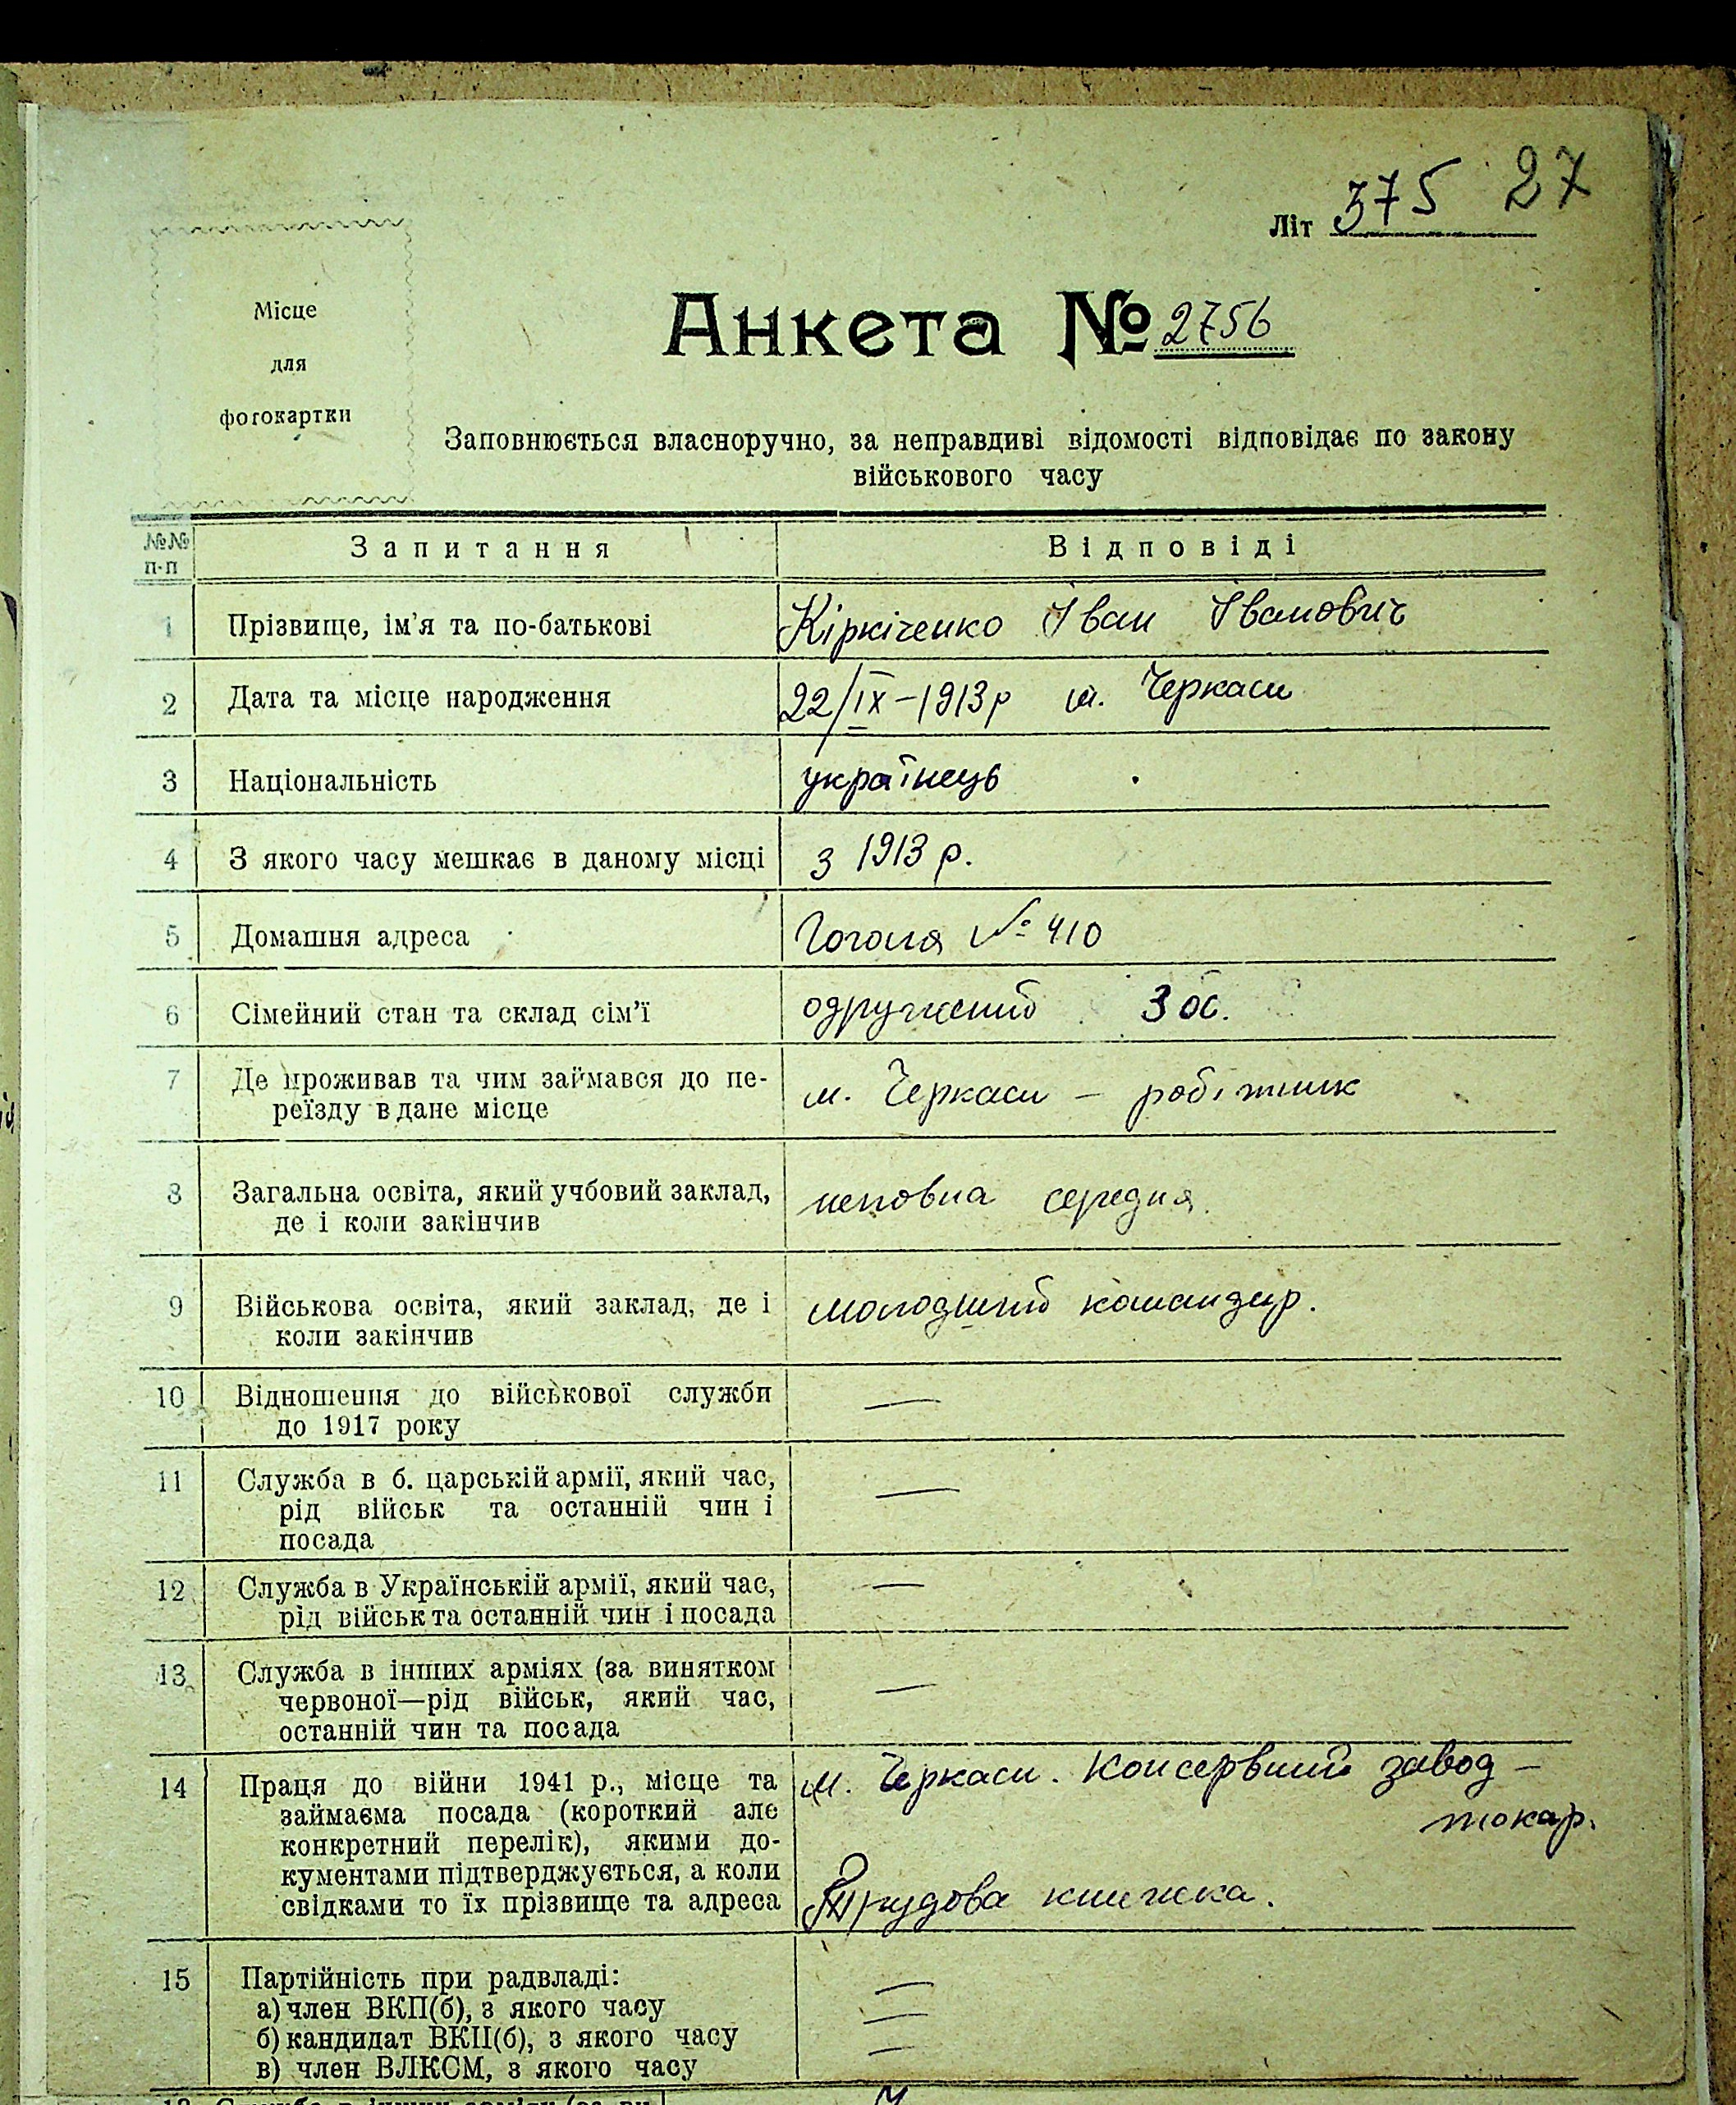 27
Літ 375
Місце
для
фотокартки
Анкета № 2756
Заповнюється власноручно, за неправдиві відомості відповідає по закону
військового часу
№№ п-п Запитання Відповіді
1 Прізвище, ім'я та по-батькові Кіркіченко Іван Іванович
2 Дата та місце народження 22/IX-1913р м. Черкаси
3 Національність українець
4 З якого часу мешкає в даному місці з 1913 р.
5 Домашня адреса Гоголя № 410
6 Сімейний стан та склад сім'ї одружений 3 ос.
7 Де проживав та чим займався до пе-
реїзду в дане місце м. Черкаси – робітник
8 Загальна освіта, який учбовий заклад,
де і коли закінчив неповна середня.
9 Військова освіта, який заклад, де і
коли закінчив молодший командир.
10 Відношення до військової служби
до 1917 року —
11 Служба в б. царській армії, який час,
рід військ та останній чин і
посада —
12 Служба в Українській армії, який час,
рід військ та останній чин і посада —
13 Служба в інших арміях (за винятком
червоної—рід військ, який час,
останній чин та посада —
14 Праця до війни 1941 р., місце та
займаєма посада (короткий але
конкретний перелік), якими до-
кументами підтверджується, а коли
свідками то їх прізвище та адреса
м. Черкаси. Консервний завод –
токар.
Трудова книжка.
15 Партійність при радвладі:
а) член ВКП(б), з якого часу —
б) кандидат ВКП(б), з якого часу —
в) член ВЛКСМ, з якого часу —